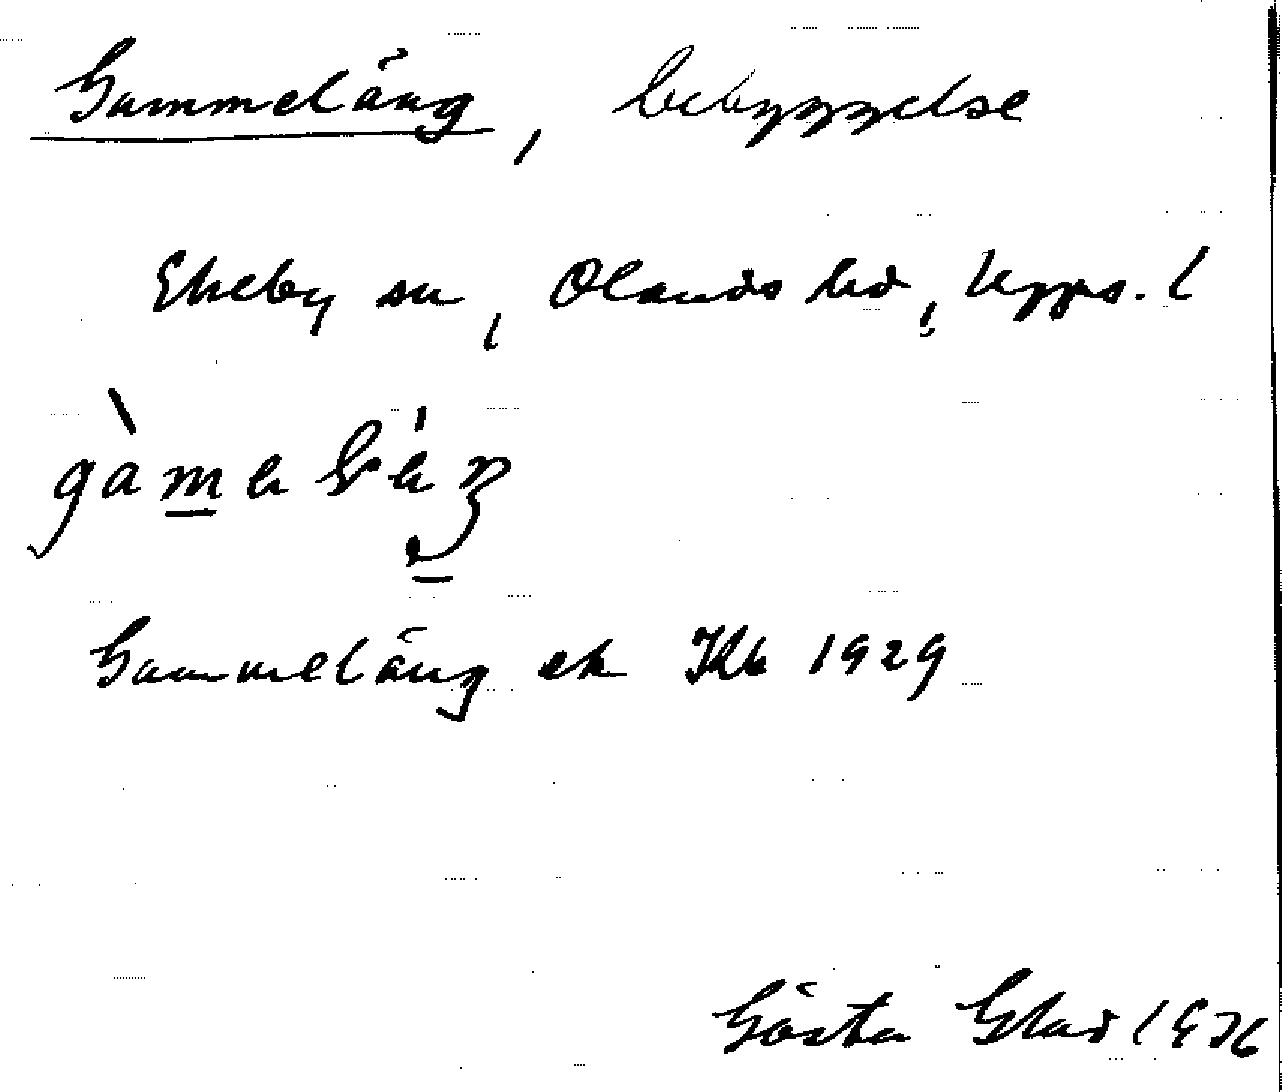 Gammeläng, bebyggelse
Ekeby sn, Olands hd, Upps. l
Gammeläng ek Kb 1929
Gösta Glad 1976